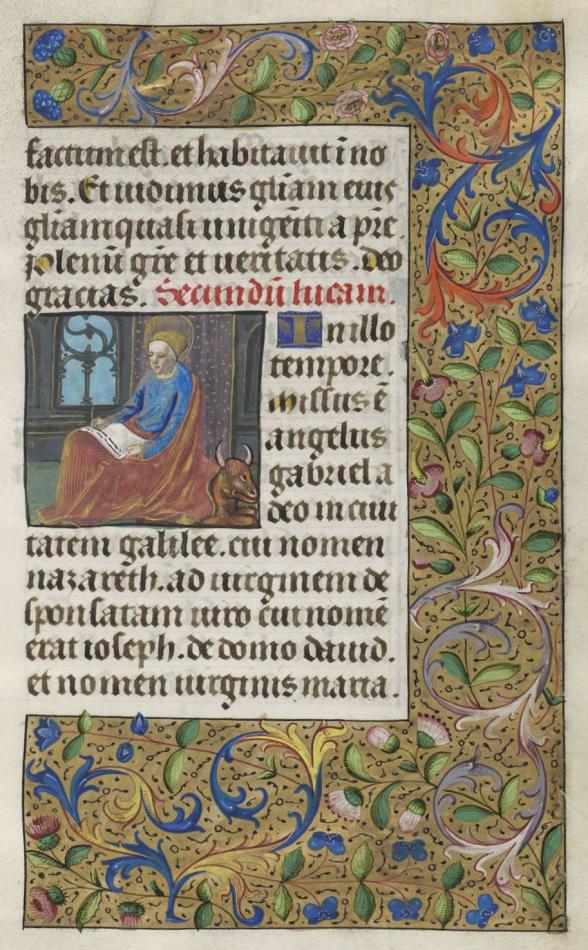 factum est. et habitauit ī no
bis. Et uidimus glīam eius
glīam quasi unigeīti a prē
plenū grē et ueritatis. deo
gracias. Secundū lucam.
In illo
tempore.
missus ē
angelus
gabriel a
deo in ciui
tatem galilee. cui nomen
nazareth. ad uirginem de
sponsatam uiro cui nomē
erat ioseph. de domo dauid.
et nomen uirginis maria.